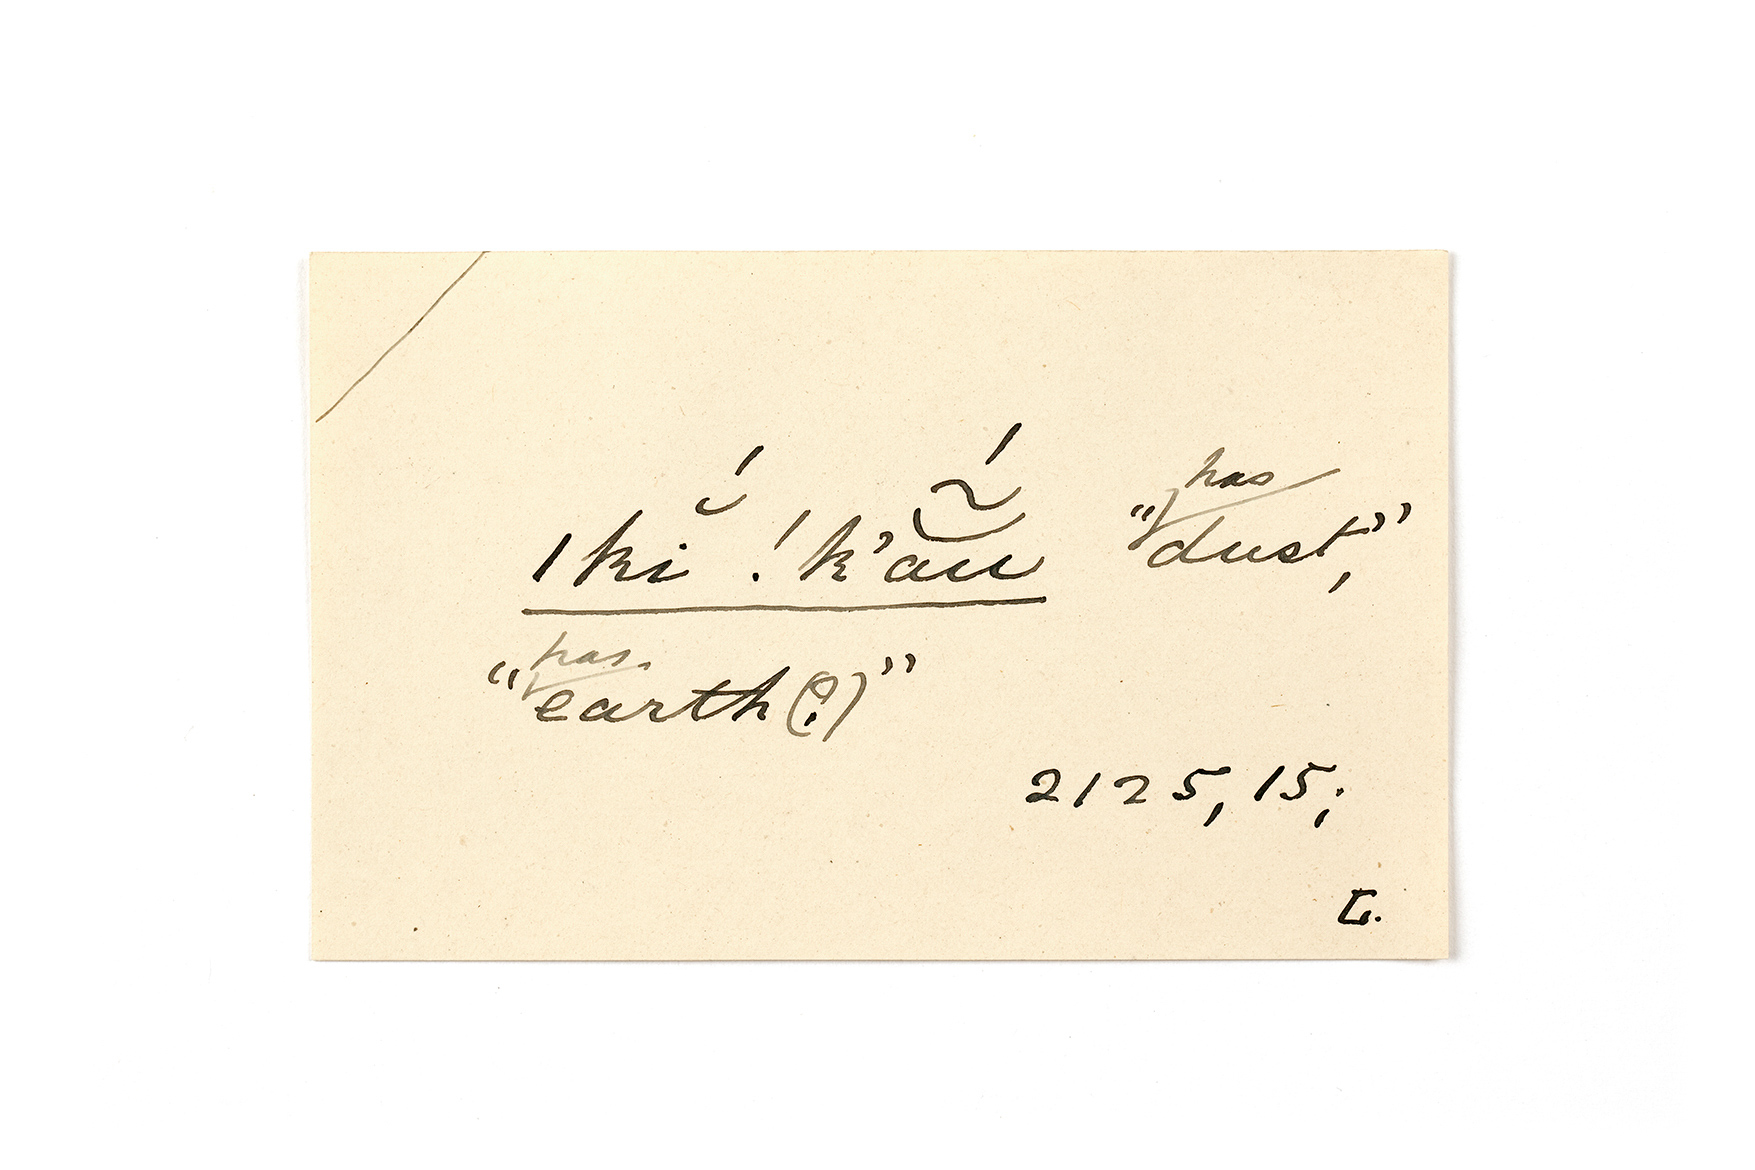 ǀkĭ́ !k’ã̯́ũ "has dust,"
"has earth (?)"
2125, 15;
L.